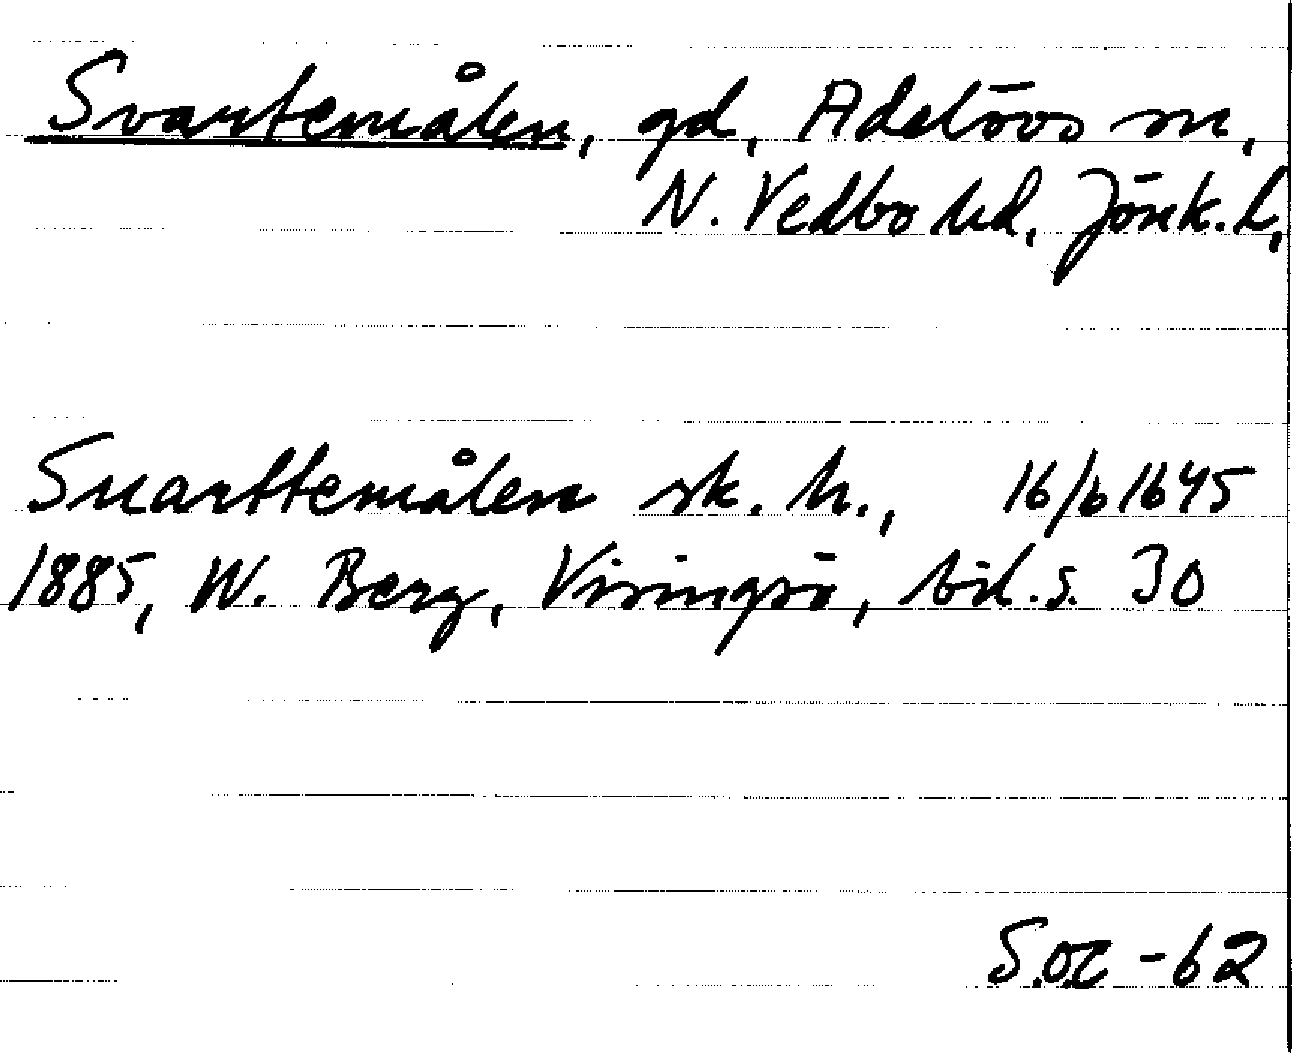 Svartemålen, gd, Adelövs sn,
N. Vedbo hd, Jönk. L,
Suarttemålen sk. h., 16/6 1645
1885, W. Berg, Visingsö, bil. s. 30
-62